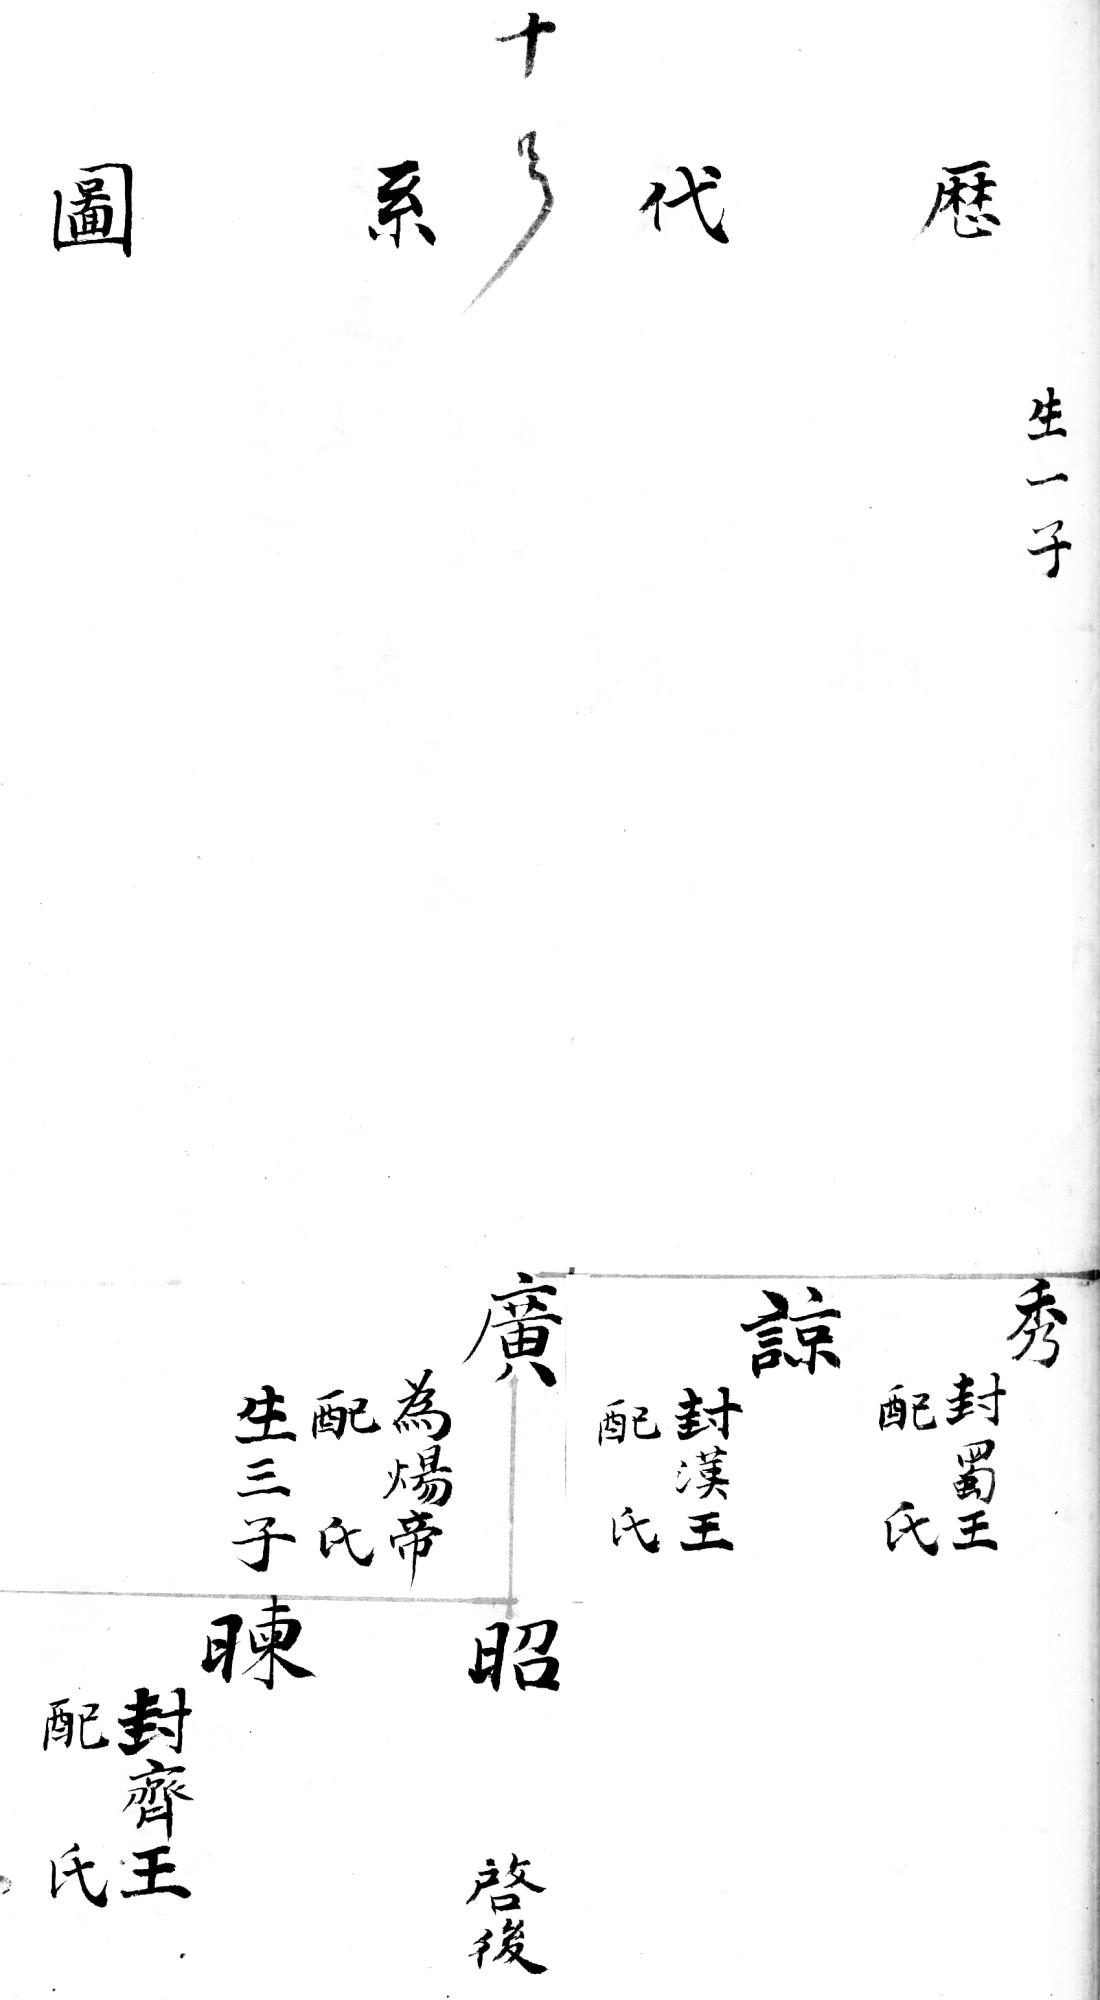 十号
歴代系圖
生一子
秀
封蜀王
配 氏
諒
封漢王
配 氏
廣
為煬帝
配 氏
生三子
昭
啓後
暕
封齊王
配 氏